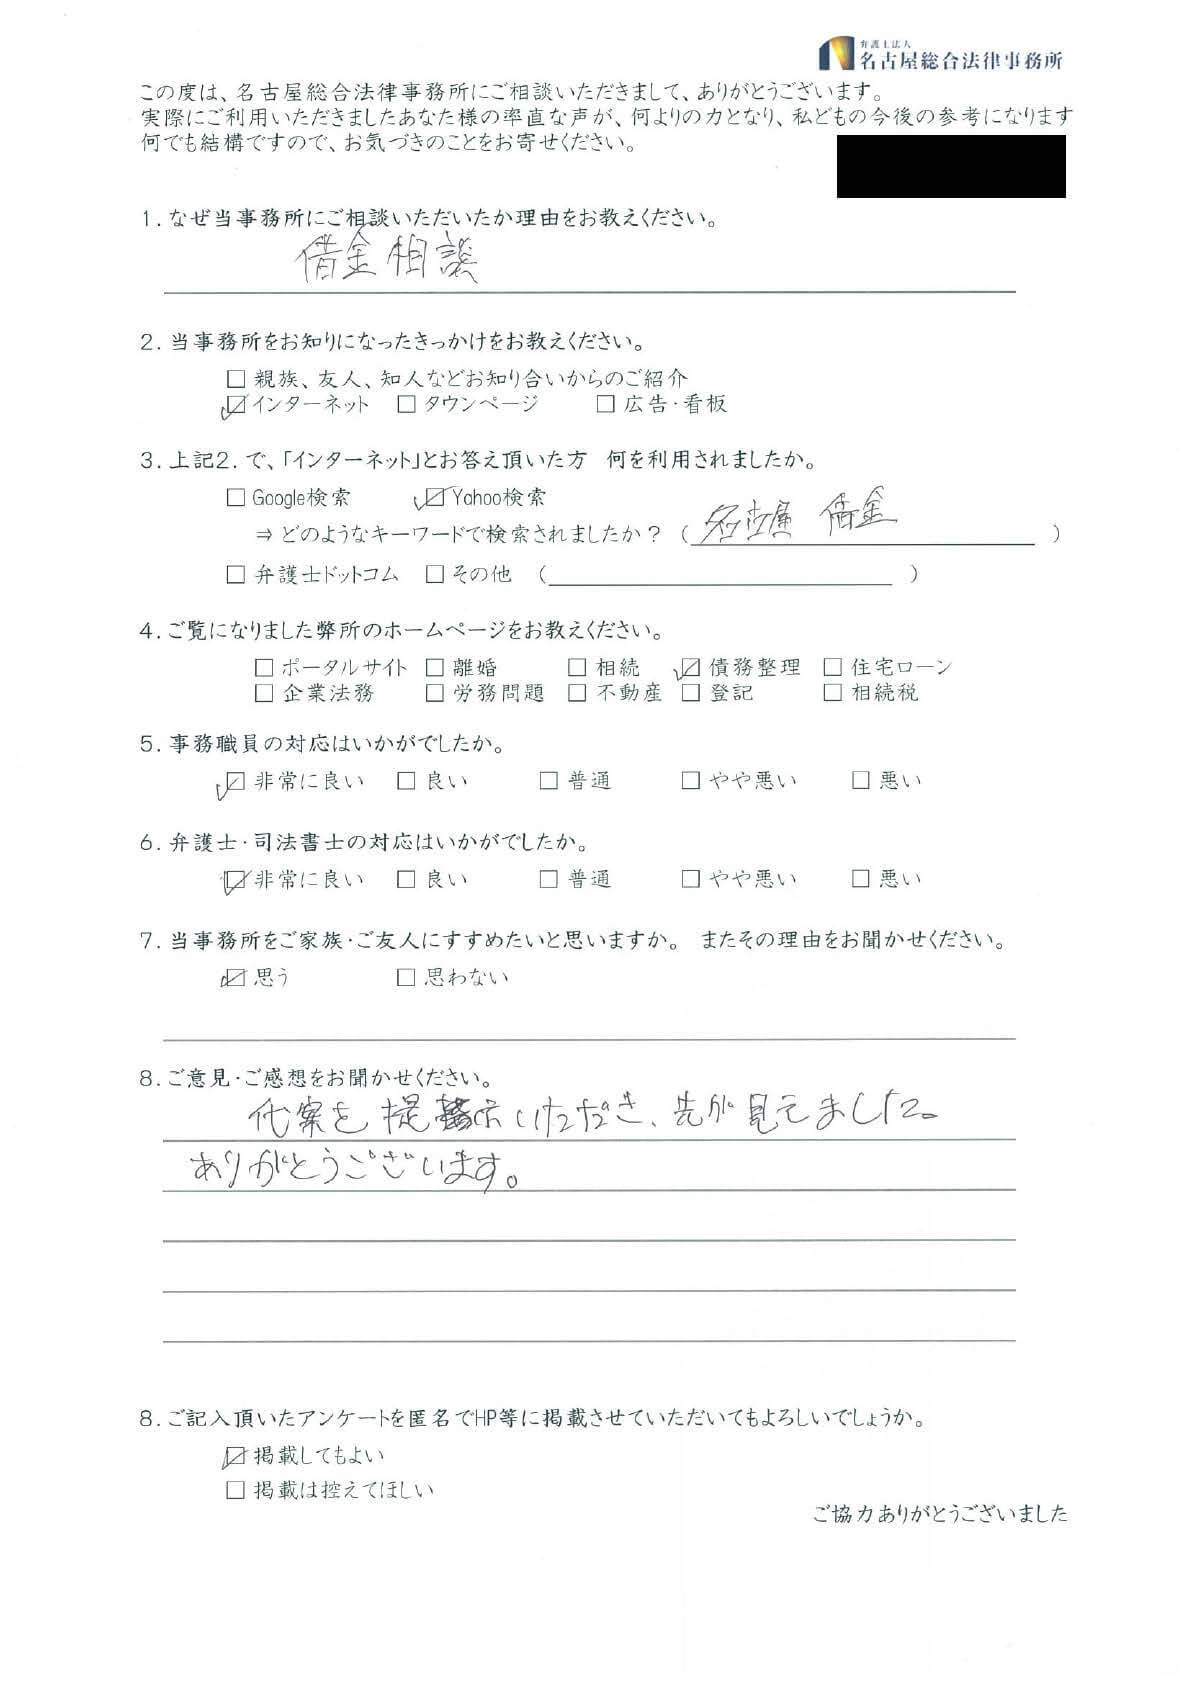 弁護士法人
名古屋総合法律事務所
この度は、名古屋総合法律事務所にご相談いただきまして、ありがとうございます。
実際にご利用いただきましたあなた様の率直な声が、何よりの力となり、私どもの今後の参考になります
何でも結構ですので、お気づきのことをお寄せください。
1.なぜ当事務所にご相談いただいたか理由をお教えください。
借金相談
2.当事務所をお知りになったきっかけをお教えください。
□ 親族、友人、知人などお知り合いからのご紹介
☑ インターネット □ タウンページ □ 広告・看板
3.上記2.で、「インターネット」とお答え頂いた方 何を利用されましたか。
□ Google検索 ☑ Yahoo検索
⇒ どのようなキーワードで検索されましたか？ （名古屋 借金）
□ 弁護士ドットコム □ その他 （ ）
4.ご覧になりました弊所のホームページをお教えください。
□ ポータルサイト □ 離婚 □ 相続 ☑ 債務整理 □ 住宅ローン
□ 企業法務 □ 労務問題 □ 不動産 □ 登記 □ 相続税
5.事務職員の対応はいかがでしたか。
☑ 非常に良い □ 良い □ 普通 □ やや悪い □ 悪い
6.弁護士・司法書士の対応はいかがでしたか。
☑ 非常に良い □ 良い □ 普通 □ やや悪い □ 悪い
7.当事務所をご家族・ご友人にすすめたいと思いますか。 またその理由をお聞かせください。
☑ 思う □ 思わない
8.ご意見・ご感想をお聞かせください。
代案を提示いただき、先が見えました。
ありがとうございます。
8.ご記入頂いたアンケートを匿名でHP等に掲載させていただいてもよろしいでしょうか。
☑ 掲載してもよい
□ 掲載は控えてほしい
ご協力ありがとうございました